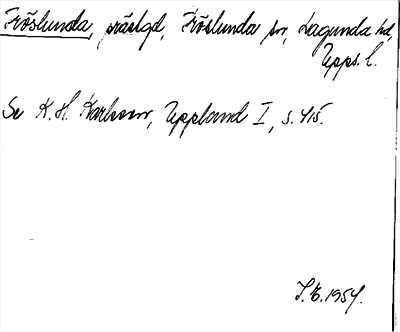 Fröslunda, prästgd, Fröslunda sn, Lagunda hd,
Upps. l.
Se K. H. Karlsson, Uppland I, s. 415.
I. E. 1954.